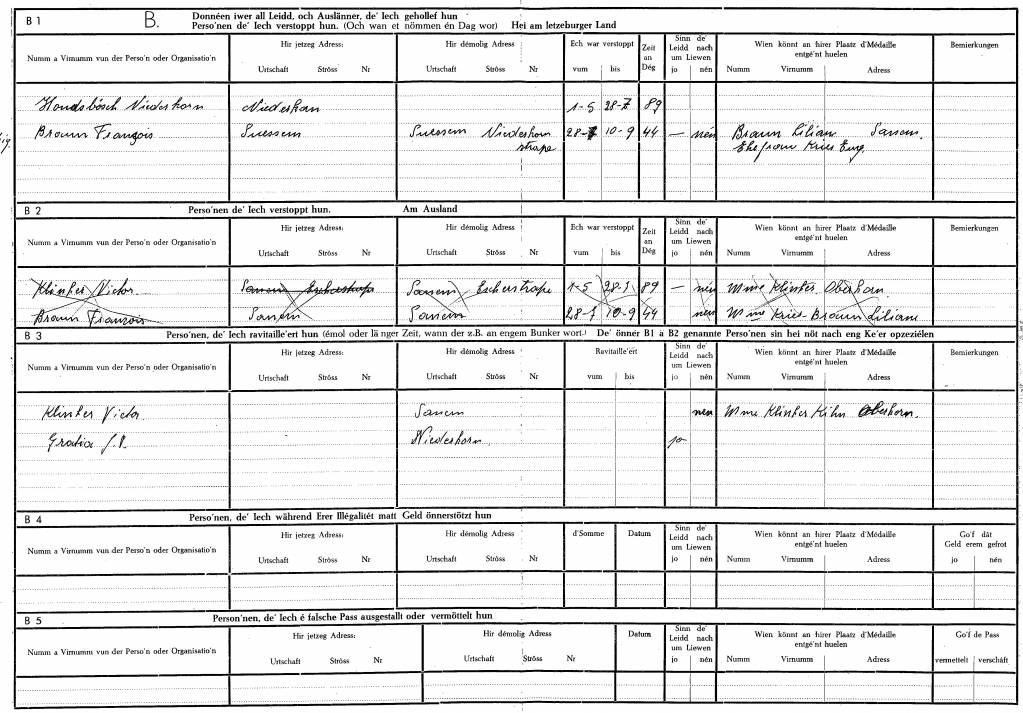 B 1 B. Donnéen iwer all Leidd, och Auslänner, de' Iech gehollef hun
Perso'nen de' Iech verstoppt hun. (Och wan et nömmen én Dag wor) Hei am letzeburger Land
Numm a Virnumm vun der Perso'n oder Organisatio'n Hir jetzeg Adress: Hir démolig Adress Ech war verstoppt Zeit an Dég Sinn de' Leidd nach um Liewen Wien könnt an hirer Plaatz d'Médaille entgé'nt huelen Bemierkungen
Urtschaft Ströss Nr Urtschaft Ströss Nr vum bis jo nén Numm Virnumm Adress
Hondsbösch Niederkorn Niederkorn 1-5 28-7 89
Braun François Suessem Suessem Niederkorn 28-7 10-9 44 — nén Braun Lilian Sanem.
strape Ehefrau Kries Eug.
B 2 Perso'nen de' Iech verstoppt hun. Am Ausland
Numm a Virnumm vun der Perso'n oder Organisatio'n Hir jetzeg Adress: Hir démolig Adress Ech war verstoppt Zeit an Dég Sinn de' Leidd nach um Liewen Wien könnt an hirer Plaatz d'Médaille entgé'nt huelen Bemierkungen
Urtschaft Ströss Nr Urtschaft Ströss Nr vum bis jo nén Numm Virnumm Adress
Klinker Victor. Sanem Sanem Escherstrape 1-5 28-7 89 — nén Mme Klinker Oberkorn.
Braun François Sanem Sanem 28-7 10-9 44 nén Mme Kries-Braun Liliane
B 3 Perso'nen, de' Iech ravitaille'ert hun (émol oder lä nger Zeit, wann der z.B. an engem Bunker wort.) De' önner B1 a B2 genannte Perso'nen sin hei nöt nach eng Ke'er opzeziélen
Numm a Virnumm vun der Perso'n oder Organisatio'n Hir jetzeg Adress: Hir démolig Adress Ravitaille'ert Sinn de' Leidd nach um Liewen Wien könnt an hirer Plaatz d'Médaille entgé'nt huelen Bemierkungen
Urtschaft Ströss Nr Urtschaft Ströss Nr vum bis jo nén Numm Virnumm Adress
Klinker Victor. Sanem nen Mme Klinker Kihn Oberkorn.
Gratia J.P. Niederkorn jo
B 4 Perso'nen, de' Iech während Erer Illégalitét matt Geld önnerstötzt hun
Numm a Virnumm vun der Perso'n oder Organisatio'n Hir jetzeg Adress: Hir démolig Adress d'Somme Datum Sinn de' Leidd nach um Liewen Wien könnt an hirer Plaatz d'Médaille entgé'nt huelen Go'f dât Geld erem gefrot
Urtschaft Ströss Nr Urtschaft Ströss Nr jo nén Numm Virnumm Adress jo nén
B 5 Person'nen, de' Iech é falsche Pass ausgestallt oder vermöttelt hun
Numm a Virnumm vun der Perso'n oder Organisatio'n Hir jetzeg Adress: Hir démolig Adress Datum Sinn de' Leidd nach um Liewen Wien könnt an hirer Plaatz d'Médaille entgé'nt huelen Go'f de Pass
Urtschaft Ströss Nr Urtschaft Ströss Nr jo nén Numm Virnumm Adress vermettelt verschäft